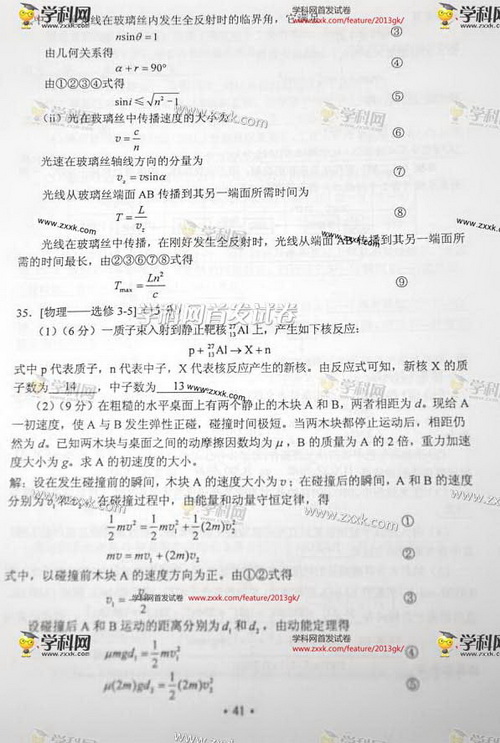 光线在玻璃丝内发生全反射时的临界角，它满足
nsinθ = 1 ③
由几何关系得
α + r = 90° ④
由①②③④式得
sini ≤ √(n² − 1) ⑤
(ii) 光在玻璃丝中传播速度的大小为
v = c/n ⑥
光速在玻璃丝轴线方向的分量为
v_z = vsinα ⑦
光线从玻璃丝端面 AB 传播到其另一端面所需时间为
T = L/v_z ⑧
光线在玻璃丝中传播，在刚好发生全反射时，光线从端面 AB 传播到其另一端面所
需的时间最长，由②③⑥⑦⑧式得
T_max = Ln²/c ⑨
学科网首发试卷
35. [物理——选修 3-5] (15 分)
(1)（6 分）一质子束入射到静止靶核 ²⁷₁₃Al 上，产生如下核反应：
p + ²⁷₁₃Al → X + n
式中 p 代表质子，n 代表中子，X 代表核反应产生的新核。由反应式可知，新核 X 的质
子数为 14 ，中子数为 13 。
(2)（9 分）在粗糙的水平桌面上有两个静止的木块 A 和 B，两者相距为 d。现给 A
一初速度，使 A 与 B 发生弹性正碰，碰撞时间极短。当两木块都停止运动后，相距仍
然为 d。已知两木块与桌面之间的动摩擦因数均为 μ，B 的质量为 A 的 2 倍，重力加速
度大小为 g。求 A 的初速度的大小。
解：设在发生碰撞前的瞬间，木块 A 的速度大小为 v；在碰撞后的瞬间，A 和 B 的速度
分别为 v₁ 和 v₂。在碰撞过程中，由能量和动量守恒定律，得
½mv² = ½mv₁² + ½(2m)v₂² ①
mv = mv₁ + (2m)v₂ ②
式中，以碰撞前木块 A 的速度方向为正。由①②式得
2 ③
学科网首发试卷
www.zxxk.com/feature/2013gk/
设碰撞后 A 和 B 运动的距离分别为 d₁ 和 d₂，由动能定理得
μmgd₁ = ½mv₁² ④
μ(2m)gd₂ = ½(2m)v₂² ⑤
· 41 ·
学科网
www.zxxk.com